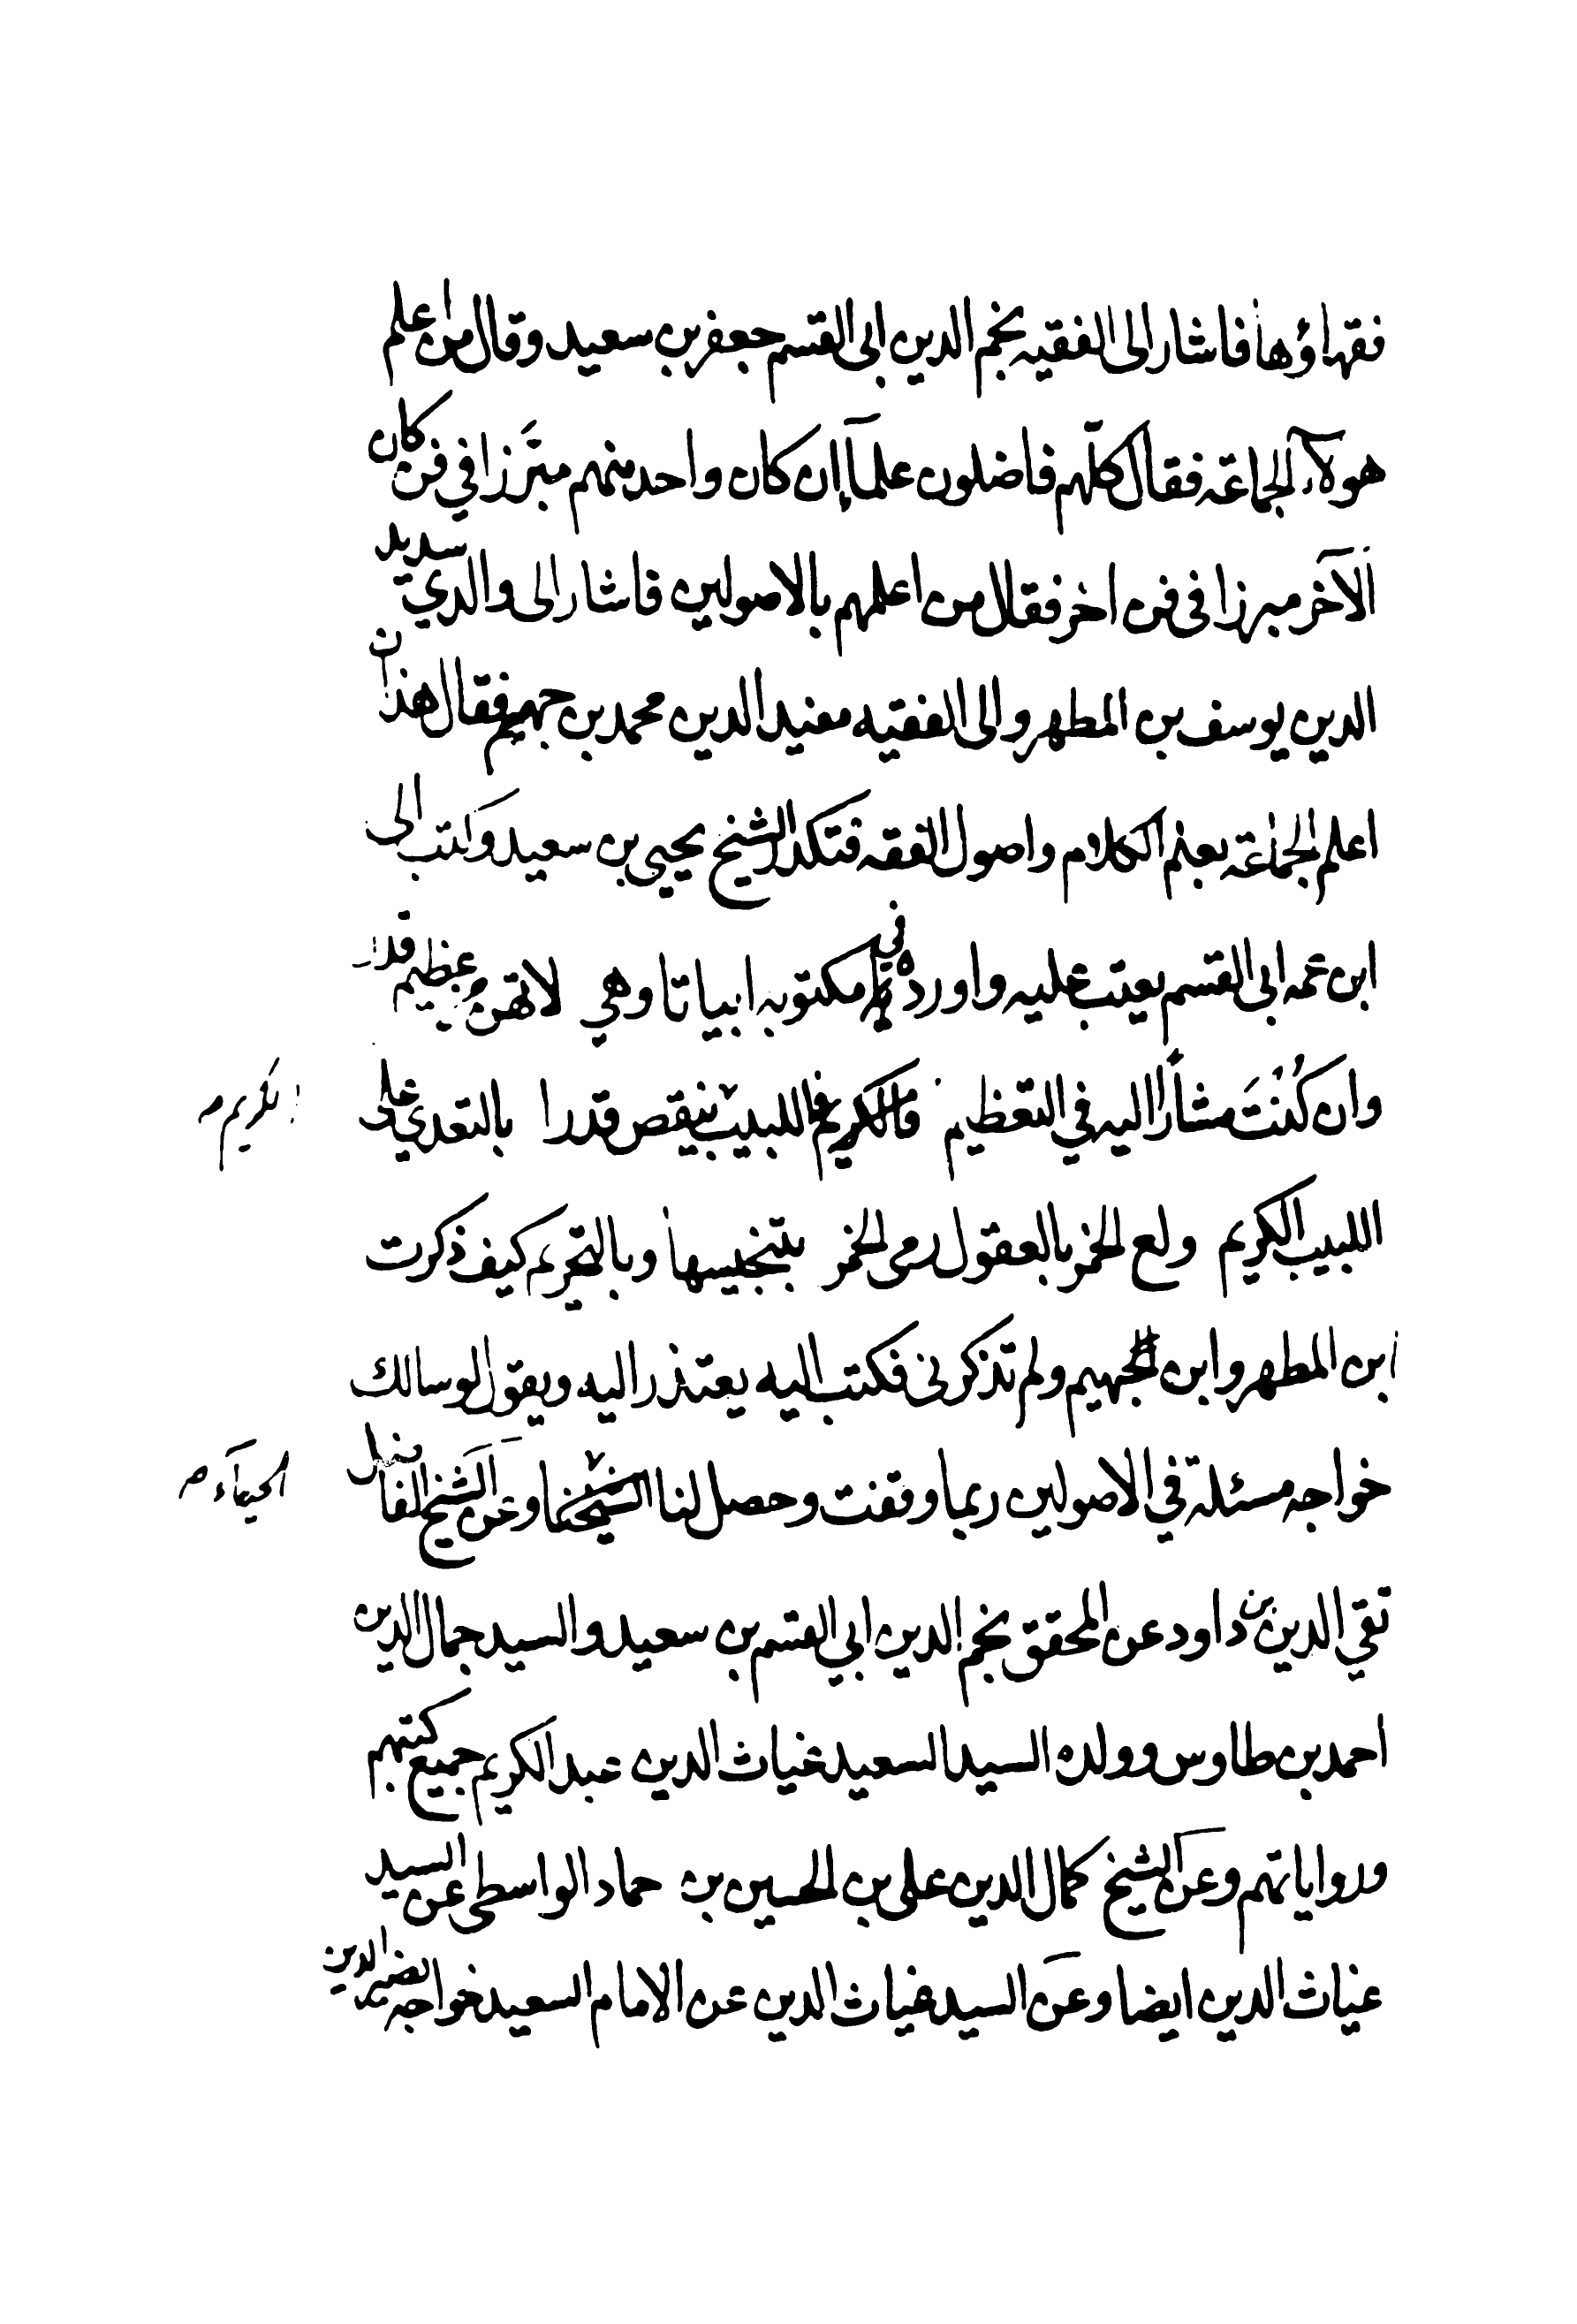 فقهاؤها فاشار الى الفقيه نجم الدين ابى القسم جعفر بن سعيد وقال من اعلم
هولآء الجماعة فقال كلّهم فاضلون علمآء إن كان واحد منهم مبّرزا في فن كان
الآخر مبرزا فى فن اخر فقال من اعلمهم بالاصولين فاشار الى والدي سديد
الدين يوسف بن المطهر والى الفقيه مفيد الدين محمد بن جهيم فقال هذان
اعلم الجماعة بعلم الكلام واصول الفقه فتكدر الشيخ يحيى بن سعيد وكتب الى
ابن عمه ابى القسم يعتب عليه واورده في مكتوبه ابياتا وهي لا تهن من عظيم قدر
وان كُنْتَ مشارًا اليه في التعظيم فاللبيب الكريم ينقص قدرا بالتعدي على
الكريم م
اللبيب الكريم ولع الخمر بالعقول رمى الخمر بتنجيسها وبالتحريم كيف ذكرت
ابن المطهر وابن الجهيم ولم تذكرنى فكتب اليه يعتذر اليه ويقول لو سالك
خواجه مسئلة في الاصولين ربما وقفت وحصل لنا وعن الشيخ الفاضل
الحياء م
تقي الدين بن داود عن المحقق نجم الدين ابي القسم بن سعيد والسيد جمال الدين
احمد بن طاوس وولده السيد السعيد غياث الدين عبد الكريم جميع كتبهم
ورواياتهم وعن الشيخ كمال الدين على بن الحسين بن حماد الواسطى عن السيد
غياث الدين ايضا وعن السيد غياث الدين عن الامام السعيد خواجه نصير الدين